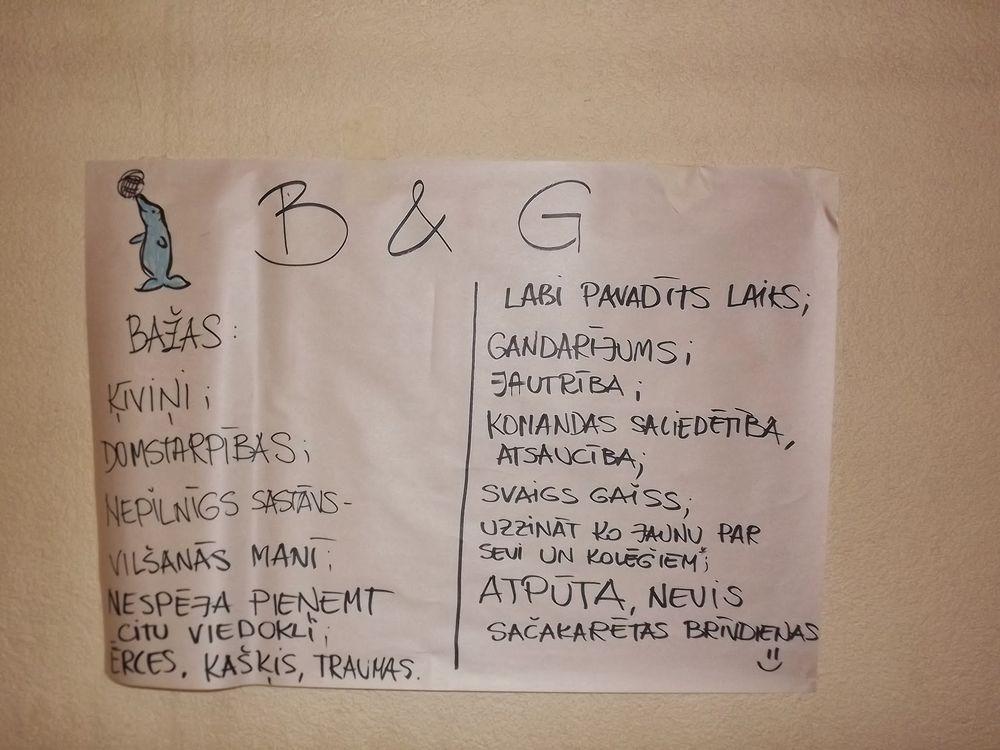 B & G
BAŽAS:
ĶIVIŅI;
DOMSTARPĪBAS;
NEPILNĪGS SASTĀVS-
VILŠANĀS MANĪ;
NESPĒJA PIEŅEMT
CITU VIEDOKLI;
ĒRCES, KAŠĶIS, TRAUMAS.
LABI PAVADĪTS LAIKS;
GANDARĪJUMS;
JAUTRĪBA;
KOMANDAS SALIEDĒTĪBA,
ATSAUCĪBA;
SVAIGS GAISS;
UZZINĀT KO JAUNU PAR
SEVI UN KOLĒĢIEM;
ATPŪTA, NEVIS
SAČAKARĒTAS BRĪVDIENAS